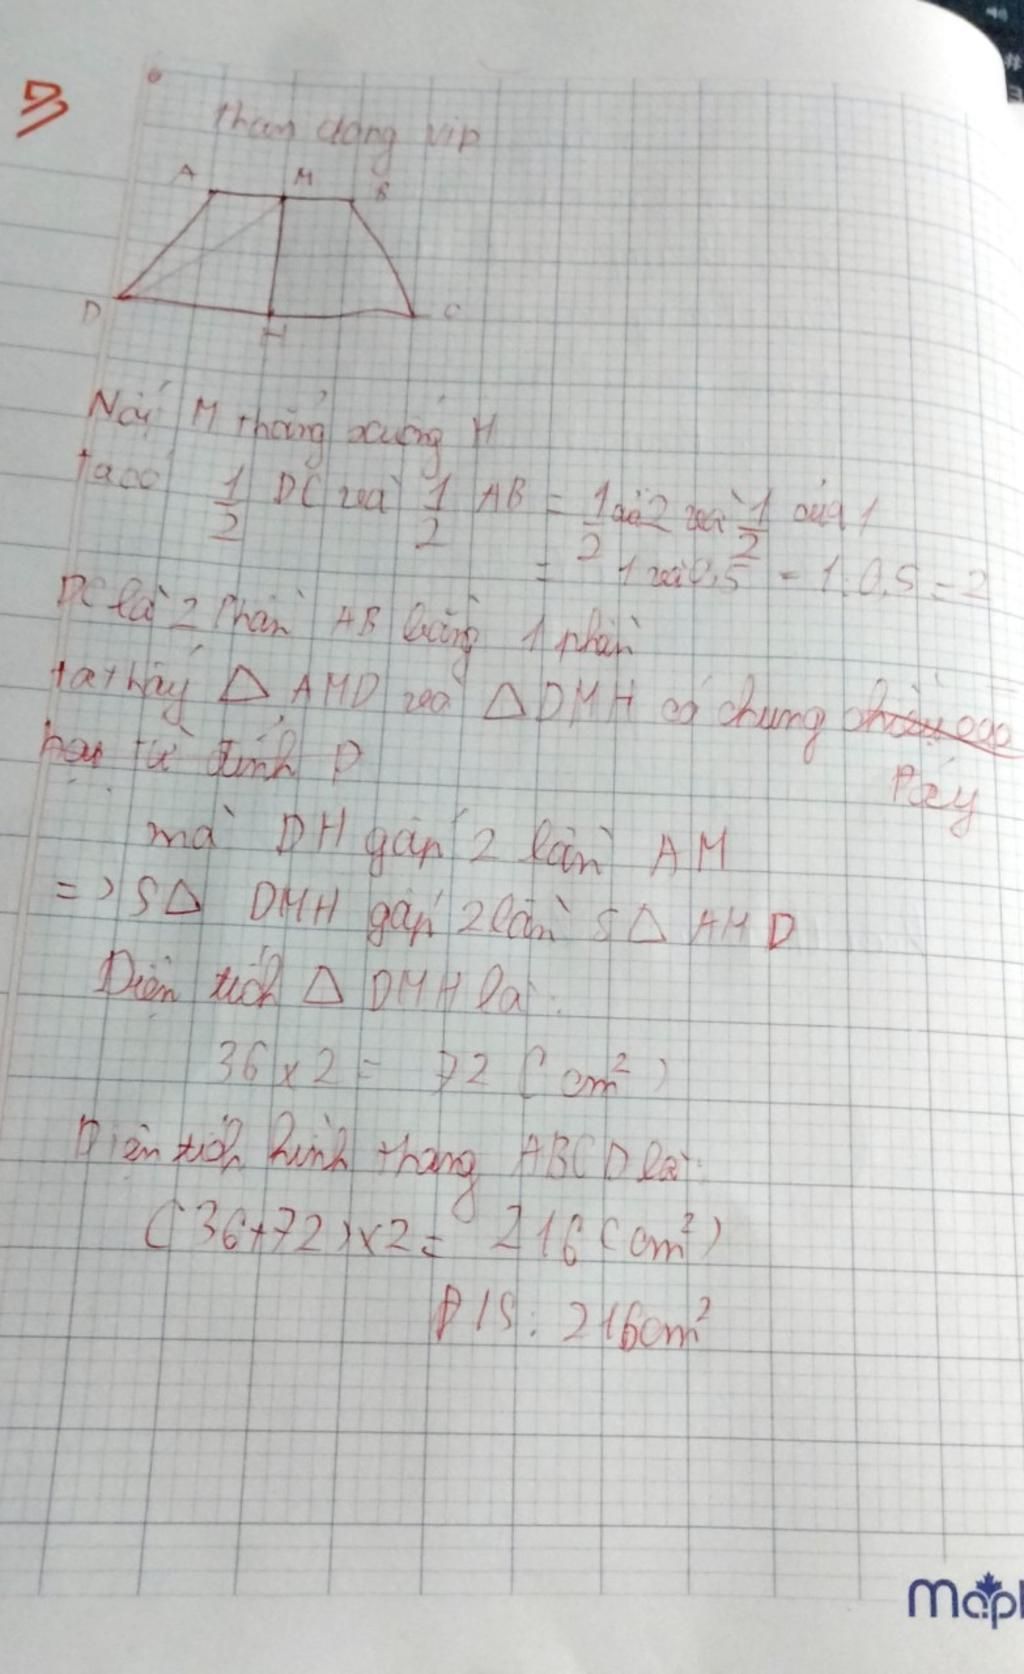 A M B
D H C
Nối M thẳng xuống H
ta có 1/2 DC và 1/2 AB = 1/2 của 2 và 1/2 của 1
= 1 và 0,5 = 1:0,5 = 2
DC là 2 phần AB bằng 1 phần
ta thấy Δ AMD và Δ DMH có chung
đáy
hạ từ đỉnh D
mà DH gấp 2 lần AM
=> SΔ DMH gấp 2 lần SΔ AMD
Diện tích Δ DMH là:
36 x 2 = 72 (cm²)
Diện tích hình thang ABCD là:
(36+72) x 2 = 216 (cm²)
Đ/S: 216cm²
Mapl